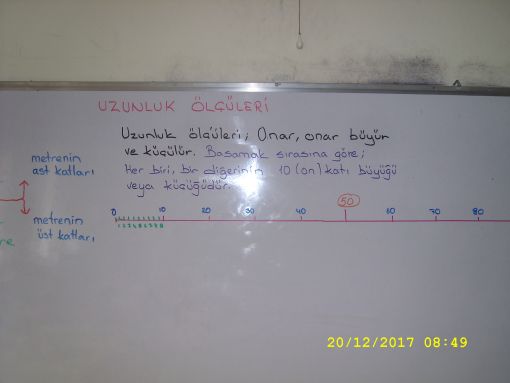 UZUNLUK ÖLÇÜLERİ
Uzunluk ölçüleri; Onar, onar büyür
ve küçülür. Basamak sırasına göre;
Her biri, bir diğerinin 10 (on) katı büyüğü
veya küçüğüdür.
metrenin
ast katları
metrenin
üst katları
re
0 10 20 30 40 50 60 70 80
1 2 3 4 5 6 7 8 9 10
20/12/2017 08:49